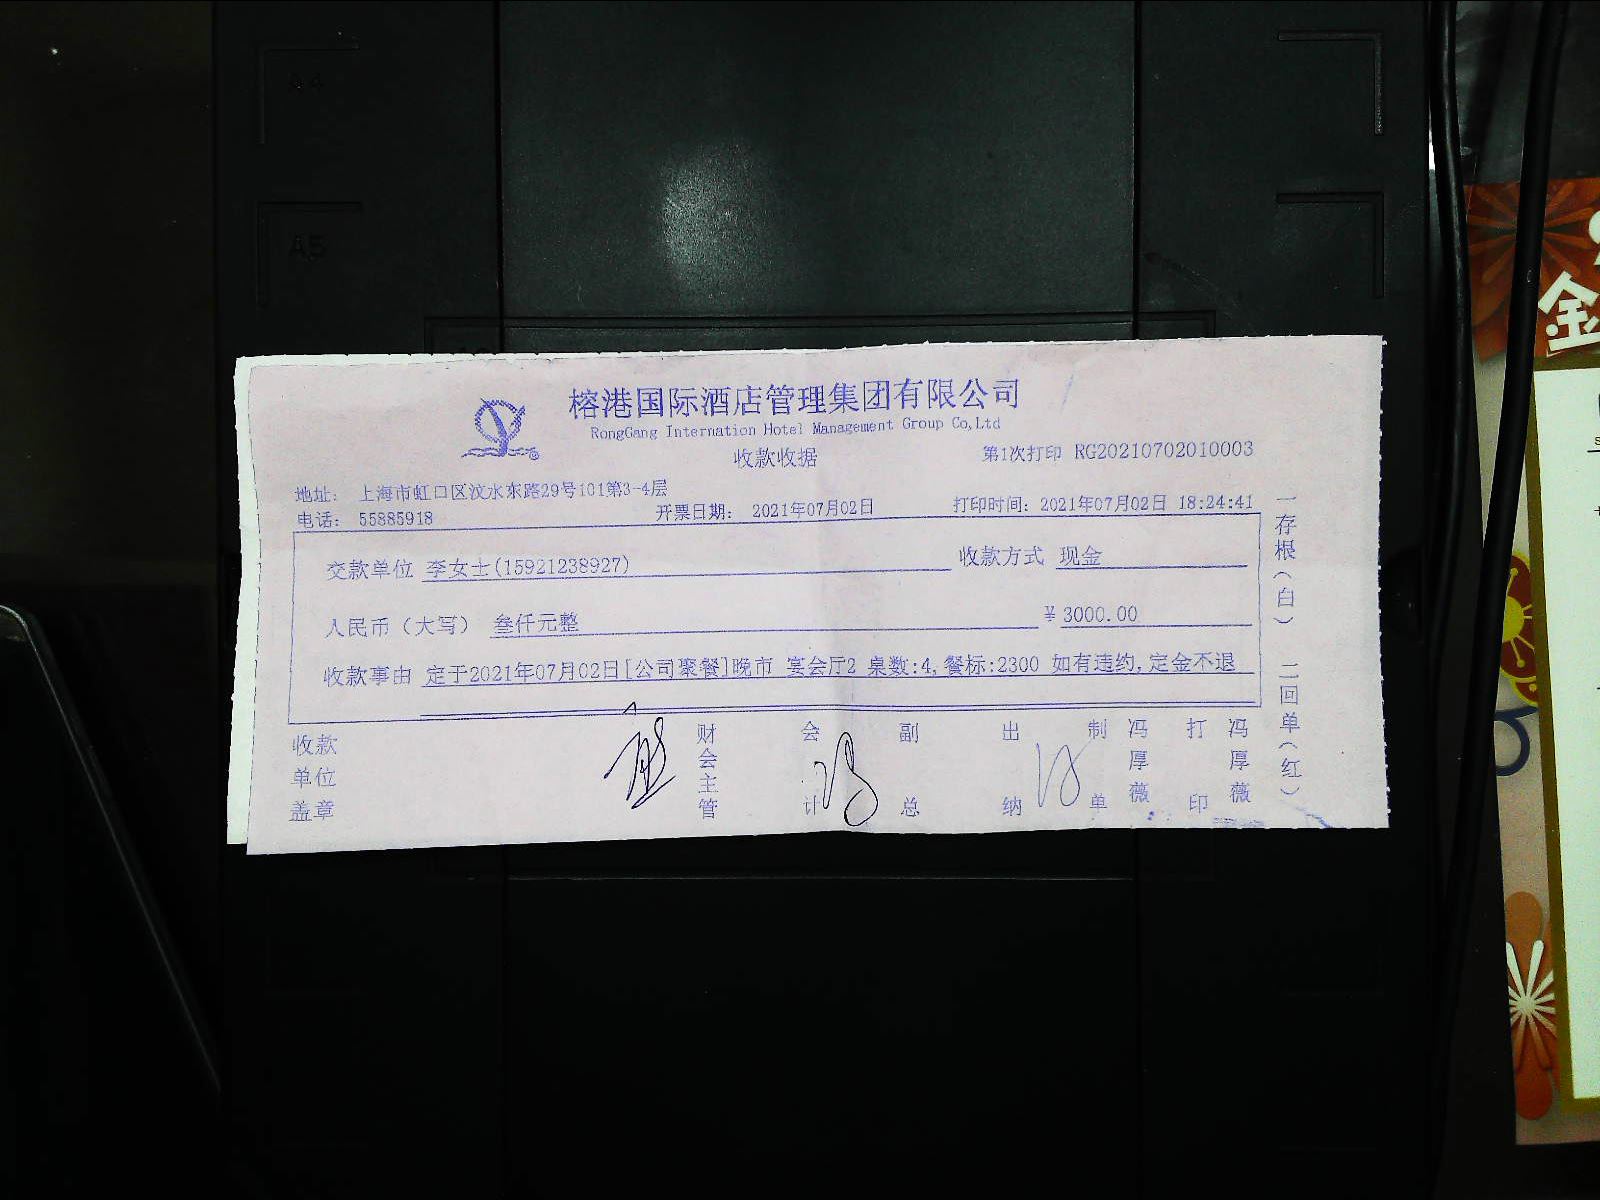 A4
A5
金
榕港国际酒店管理集团有限公司
RongGang Internation Hotel Management Group Co,Ltd
收款收据
第1次打印 RG20210702010003
地址: 上海市虹口区汶水东路29号101第3-4层
电话: 55885918 开票日期: 2021年07月02日 打印时间: 2021年07月02日 18:24:41
交款单位 李女士(15921238927) 收款方式 现金
人民币（大写） 叁仟元整 ¥3000.00
收款事由 定于2021年07月02日[公司聚餐]晚市 宴会厅2 桌数:4,餐标:2300 如有违约,定金不退
收款单位盖章 财会主管 会计 副总 出纳 制单 冯厚薇 打印 冯厚薇
一存根（白） 二回单（红）